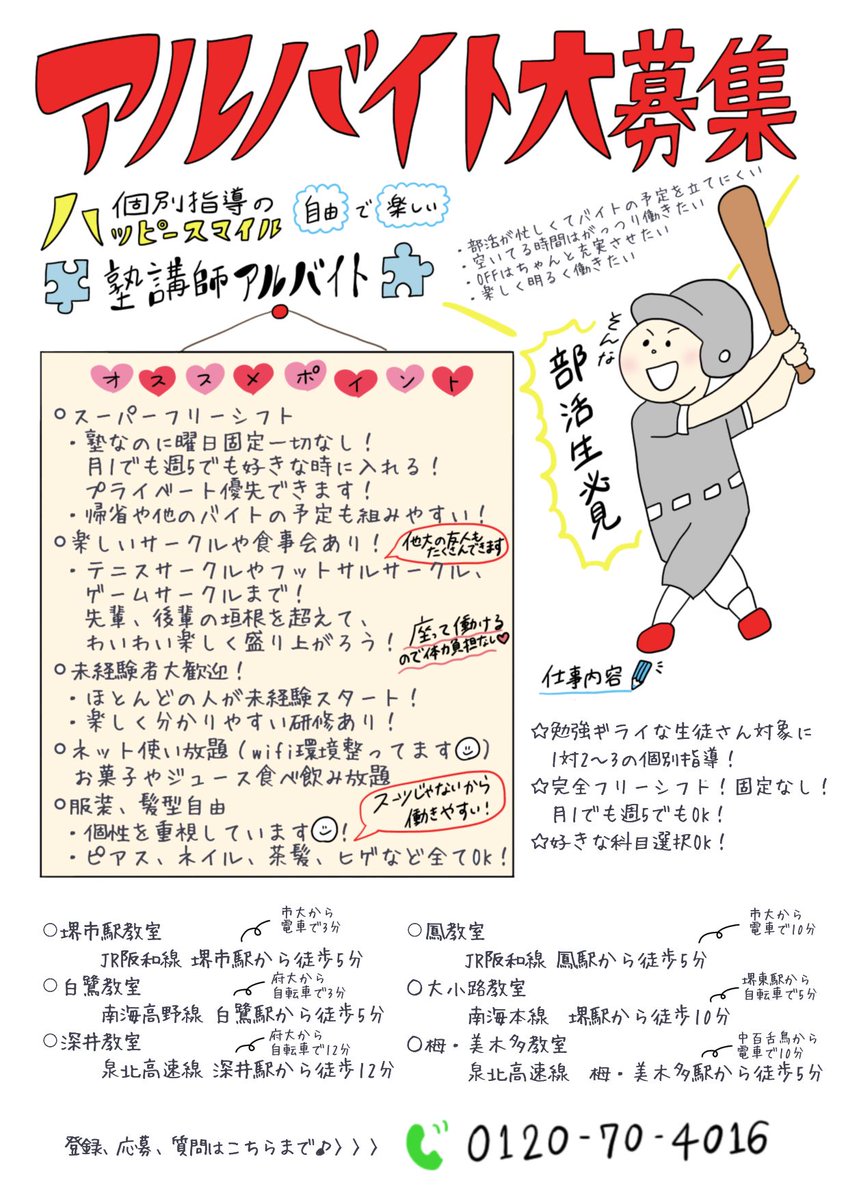 アルバイト大募集
個別指導の
ハッピースマイル
自由で楽しい
塾講師アルバイト
・部活が忙しくてバイトの予定を立てにくい
・空いてる時間はがっつり働きたい
・OFFはちゃんと充実させたい
・楽しく明るく働きたい
そんな
部活生必見
オススメポイント
○スーパーフリーシフト
・塾なのに曜日固定一切なし！
月1でも週5でも好きな時に入れる！
プライベート優先できます！
・帰省や他のバイトの予定も組みやすい！
○楽しいサークルや食事会あり！
他大の友人も
たくさんできます
・テニスサークルやフットサルサークル、
ゲームサークルまで！
先輩、後輩の垣根を超えて、
わいわい楽しく盛り上がろう！
座って働ける
ので体力負担なし♥
○未経験者大歓迎！
・ほとんどの人が未経験スタート！
・楽しく分かりやすい研修あり！
○ネット使い放題（wifi環境整ってます☺）
お菓子やジュース食べ飲み放題
○服装、髪型自由
スーツじゃないから
働きやすい！
・個性を重視しています☺！
・ピアス、ネイル、茶髪、ヒゲなど全てOK！
仕事内容
☆勉強ギライな生徒さん対象に
1対2～3の個別指導！
☆完全フリーシフト！固定なし！
月1でも週5でもOK！
☆好きな科目選択OK！
○堺市駅教室
市大から
電車で3分
JR阪和線 堺市駅から徒歩5分
○白鷺教室
府大から
自転車で3分
南海高野線 白鷺駅から徒歩5分
○深井教室
府大から
自転車で12分
泉北高速線 深井駅から徒歩12分
○鳳教室
市大から
電車で10分
JR阪和線 鳳駅から徒歩5分
○大小路教室
堺東駅から
自転車で5分
南海本線 堺駅から徒歩10分
○栂・美木多教室
中百舌鳥から
電車で10分
泉北高速線 栂・美木多駅から徒歩5分
登録、応募、質問はこちらまで♪〉〉〉
0120-70-4016